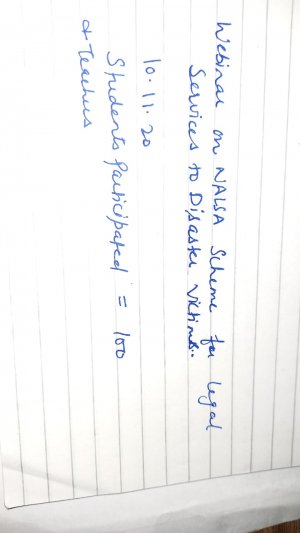 Webinar on NALSA Scheme for Legal
Services to Disaster Victims.
10.11.20
Students participated = 100
& Teachers